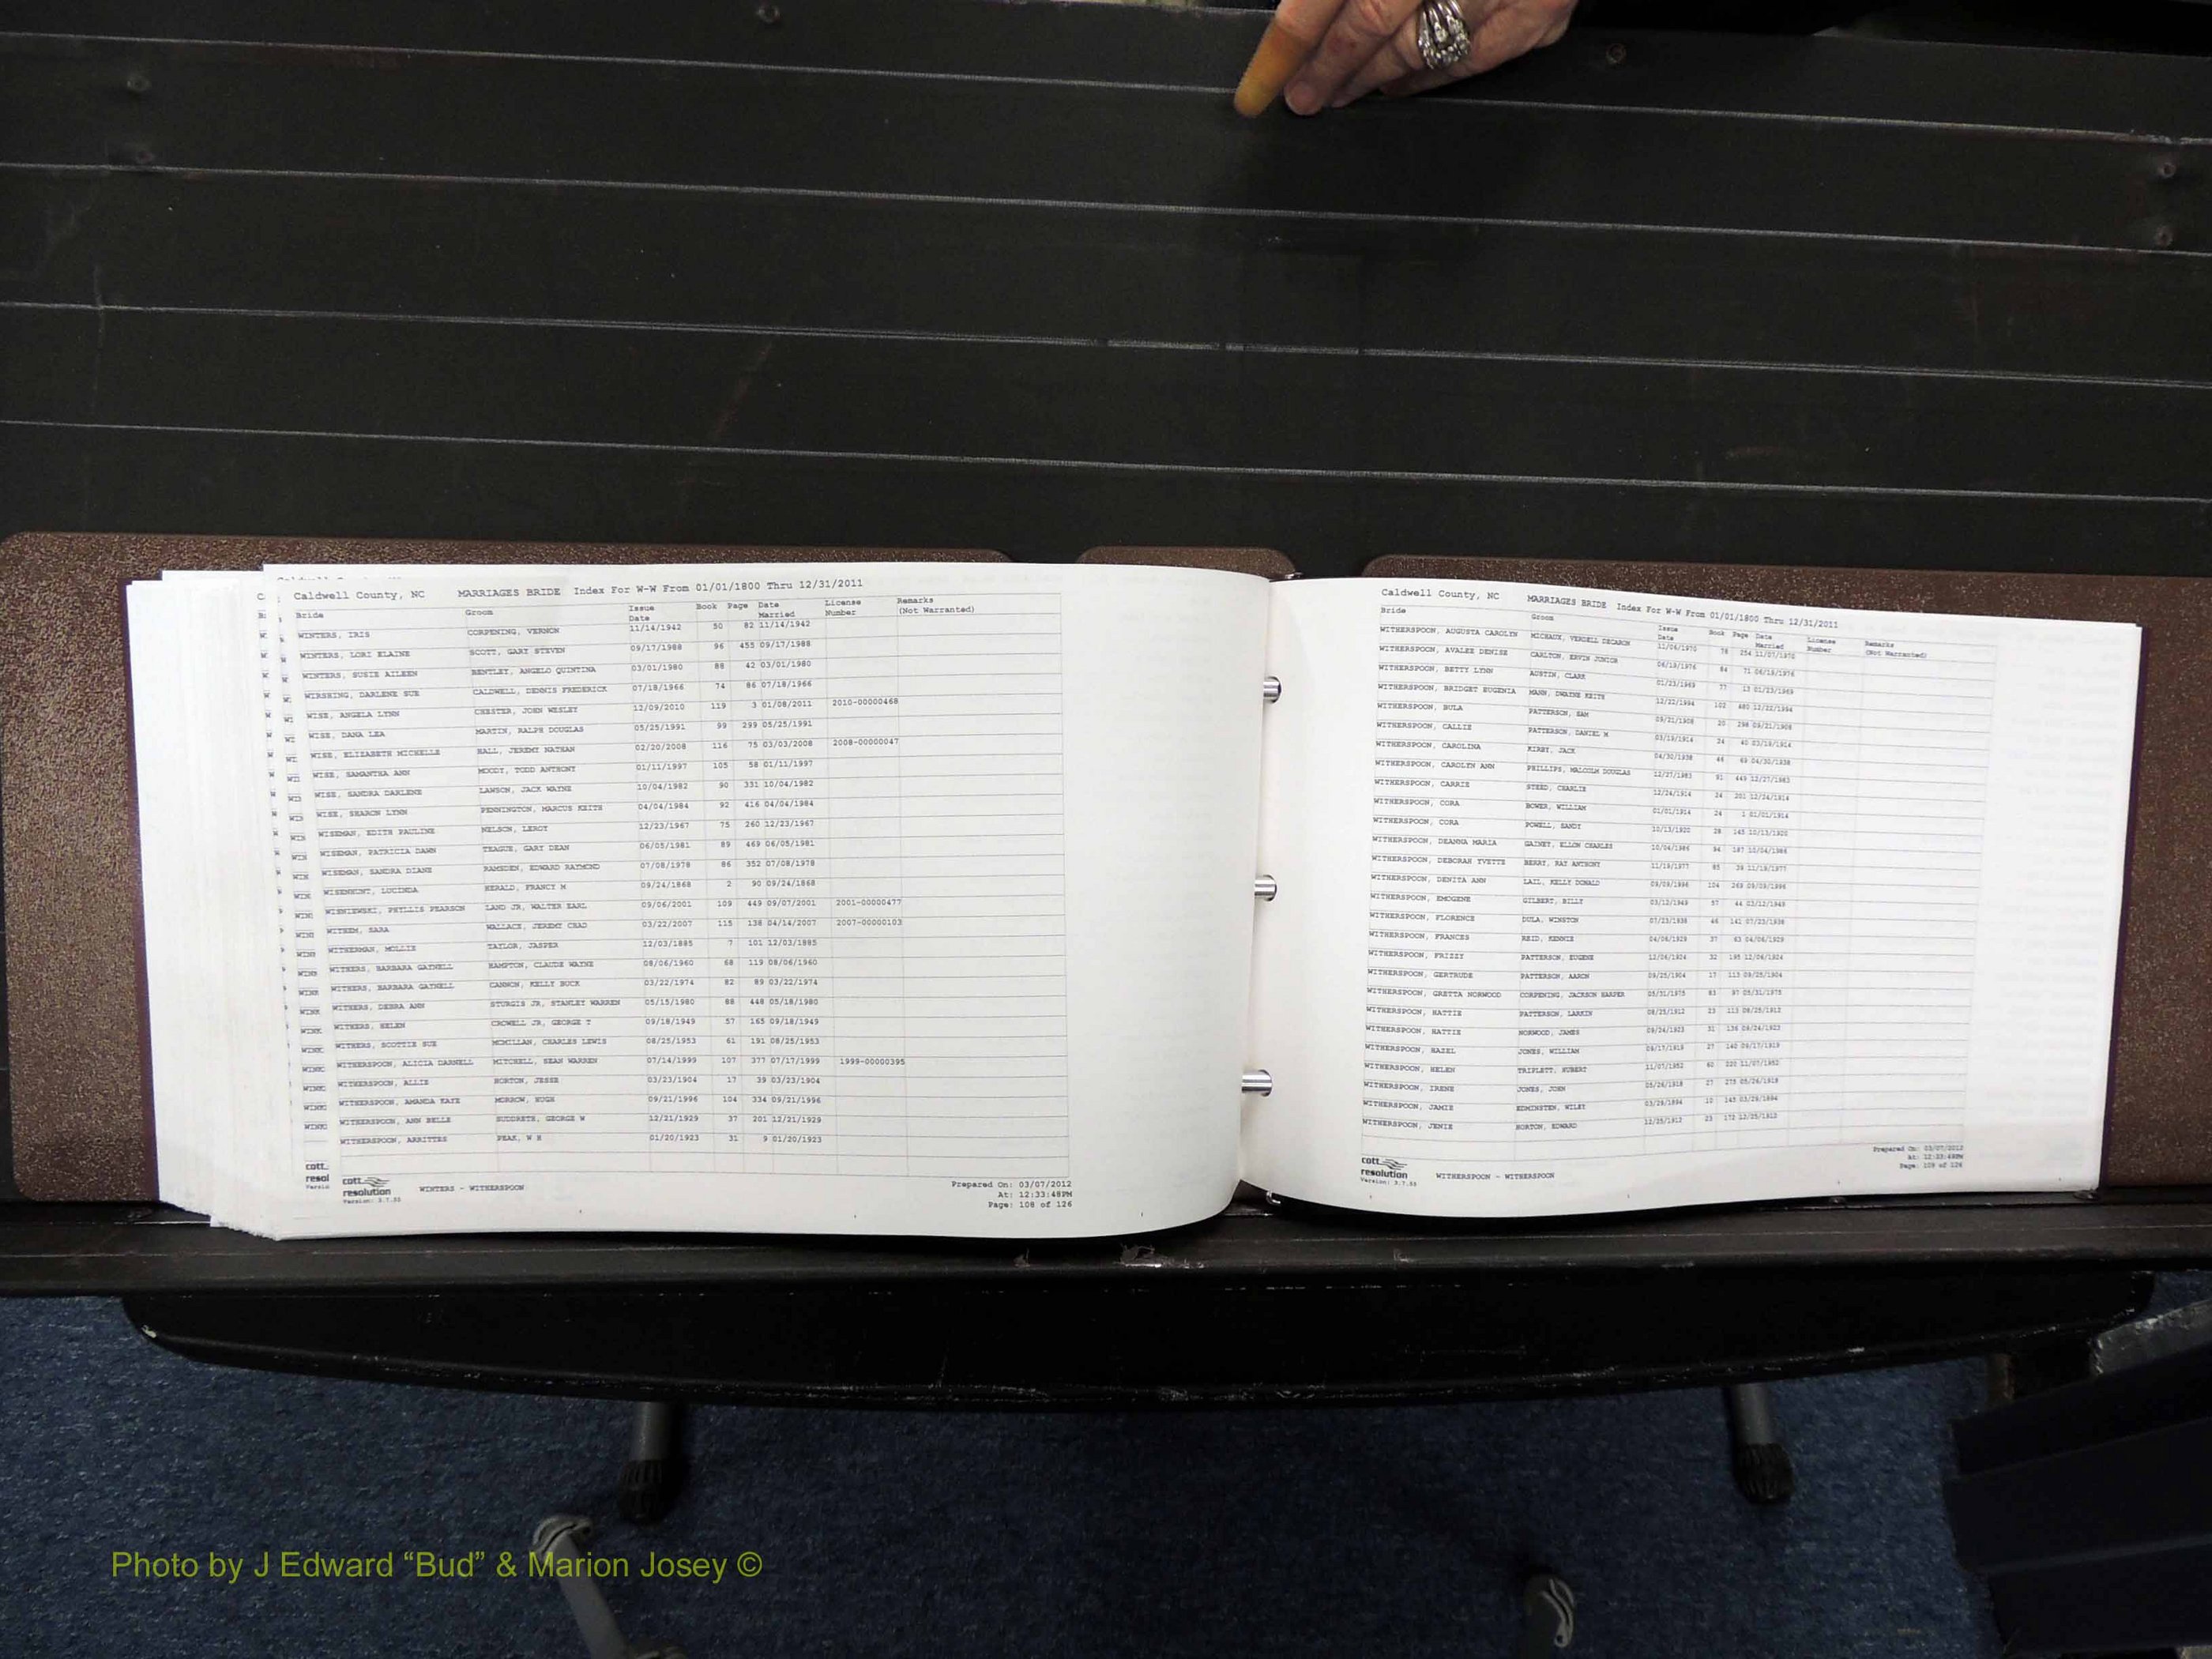 Caldwell County, NC MARRIAGES BRIDE Index For W-W From 01/01/1800 Thru 12/31/2011
Bride Groom Issue Date Book Page Date Married License Number Remarks (Not Warranted)
WINTERS, IRIS CORPENING, VERNON 11/14/1942 50 82 11/14/1942
WINTERS, LORI ELAINE SCOTT, GARY STEVEN 09/17/1988 96 455 09/17/1988
WINTERS, SUSIE AILEEN BENTLEY, ANGELO QUINTINA 03/01/1980 88 42 03/01/1980
WIRSHING, DARLENE SUE CALDWELL, DENNIS FREDERICK 07/18/1966 74 86 07/18/1966
WISE, ANGELA LYNN CHESTER, JOHN WESLEY 12/09/2010 119 3 01/08/2011 2010-00000468
WISE, DANA LEA MARTIN, RALPH DOUGLAS 05/25/1991 99 299 05/25/1991
WISE, ELIZABETH MICHELLE HALL, JEREMY NATHAN 02/20/2008 116 75 03/03/2008 2008-00000047
WISE, SAMANTHA ANN MOODY, TODD ANTHONY 01/11/1997 105 58 01/11/1997
WISE, SANDRA DARLENE LAWSON, JACK WAYNE 10/04/1982 90 331 10/04/1982
WISE, SHARON LYNN PENNINGTON, MARCUS KEITH 04/04/1984 92 416 04/04/1984
WISEMAN, EDITH PAULINE NELSON, LEROY 12/23/1967 75 260 12/23/1967
WISEMAN, PATRICIA DAWN TEAGUE, GARY DEAN 06/05/1981 89 469 06/05/1981
WISEMAN, SANDRA DIANE RAMSDEN, EDWARD RAYMOND 07/08/1978 86 352 07/08/1978
WISENHUNT, LUCINDA HERALD, FRANCY M 09/24/1868 2 90 09/24/1868
WISNIEWSKI, PHYLLIS PEARSON LAND JR, WALTER EARL 09/06/2001 109 449 09/07/2001 2001-00000477
WITHEM, SARA WALLACE, JEREMY CHAD 03/22/2007 115 138 04/14/2007 2007-00000103
WITHERMAN, MOLLIE TAYLOR, JASPER 12/03/1885 7 101 12/03/1885
WITHERS, BARBARA GAYNELL HAMPTON, CLAUDE WAYNE 08/06/1960 68 119 08/06/1960
WITHERS, BARBARA GAYNELL CANNON, KELLY BUCK 03/22/1974 82 89 03/22/1974
WITHERS, DEBRA ANN STURGIS JR, STANLEY WARREN 05/15/1980 88 448 05/18/1980
WITHERS, HELEN CROWELL JR, GEORGE T 09/18/1949 57 165 09/18/1949
WITHERS, SCOTTIE SUE MCMILLAN, CHARLES LEWIS 08/25/1953 61 191 08/25/1953
WITHERSPOON, ALICIA DARNELL MITCHELL, SEAN WARREN 07/14/1999 107 377 07/17/1999 1999-00000395
WITHERSPOON, ALLIE HORTON, JESSE 03/23/1904 17 39 03/23/1904
WITHERSPOON, AMANDA KAYE MORROW, HUGH 09/21/1996 104 334 09/21/1996
WITHERSPOON, ANN BELLE SUDDRETH, GEORGE W 12/21/1929 37 201 12/21/1929
WITHERSPOON, ARRITTES PEAK, W H 01/20/1923 31 9 01/20/1923
cott
resolution
Version: 3.7.55
WINTERS - WITHERSPOON
Prepared On: 03/07/2012
At: 12:33:48PM
Page: 108 of 126
Caldwell County, NC MARRIAGES BRIDE Index For W-W From 01/01/1800 Thru 12/31/2011
Bride Groom Issue Date Book Page Date Married License Number Remarks (Not Warranted)
WITHERSPOON, AUGUSTA CAROLYN MICHAUX, VERDELL DECARON 11/06/1970 78 254 11/07/1970
WITHERSPOON, AVALEE DENISE CARLTON, ERVIN JUNIOR 06/18/1976 84 71 06/18/1976
WITHERSPOON, BETTY LYNN AUSTIN, CLARK 01/23/1969 77 13 01/23/1969
WITHERSPOON, BRIDGET EUGENIA MANN, DWAYNE KEITH 12/22/1994 102 480 12/22/1994
WITHERSPOON, BULA PATTERSON, SAM 09/21/1908 20 298 09/21/1908
WITHERSPOON, CALLIE PATTERSON, DANIEL M 03/19/1914 24 40 03/19/1914
WITHERSPOON, CAROLINA KIRBY, JACK 04/30/1938 46 69 04/30/1938
WITHERSPOON, CAROLYN ANN PHILLIPS, MALCOLM DOUGLAS 12/27/1983 91 449 12/27/1983
WITHERSPOON, CARRIE STEED, CHARLIE 12/24/1914 24 201 12/24/1914
WITHERSPOON, CORA BOWER, WILLIAM 01/01/1914 24 1 01/01/1914
WITHERSPOON, CORA POWELL, SANDY 10/13/1920 28 145 10/13/1920
WITHERSPOON, DEANNA MARIA GAINEY, ELLON CHARLES 10/04/1986 94 187 10/04/1986
WITHERSPOON, DEBORAH YVETTE BERRY, RAY ANTHONY 11/19/1977 85 39 11/19/1977
WITHERSPOON, DENITA ANN LAIL, KELLY DONALD 09/09/1996 104 269 09/09/1996
WITHERSPOON, EMOGENE GILBERT, BILLY 03/12/1949 57 44 03/12/1949
WITHERSPOON, FLORENCE DULA, WINSTON 07/23/1938 46 141 07/23/1938
WITHERSPOON, FRANCES REID, KENNIE 04/06/1929 37 63 04/06/1929
WITHERSPOON, FRIZZY PATTERSON, EUGENE 12/06/1924 32 195 12/06/1924
WITHERSPOON, GERTRUDE PATTERSON, AARON 09/25/1904 17 113 09/25/1904
WITHERSPOON, GRETTA NORWOOD CORPENING, JACKSON HARPER 05/31/1975 83 97 05/31/1975
WITHERSPOON, HATTIE PATTERSON, LARKIN 08/25/1912 23 113 08/25/1912
WITHERSPOON, HATTIE NORWOOD, JAMES 09/24/1923 31 136 09/24/1923
WITHERSPOON, HAZEL JONES, WILLIAM 09/17/1919 27 140 09/17/1919
WITHERSPOON, HELEN TRIPLETT, HUBERT 11/07/1952 60 220 11/07/1952
WITHERSPOON, IRENE JONES, JOHN 05/26/1918 27 275 05/26/1918
WITHERSPOON, JAMIE EDMINSTEN, WILEY 03/29/1894 10 145 03/29/1894
WITHERSPOON, JENIE HORTON, EDWARD 12/25/1912 23 172 12/25/1912
cott
resolution
Version: 3.7.55
WITHERSPOON - WITHERSPOON
Prepared On: 03/07/2012
At: 12:33:48PM
Page: 109 of 126
Photo by J Edward “Bud” & Marion Josey ©